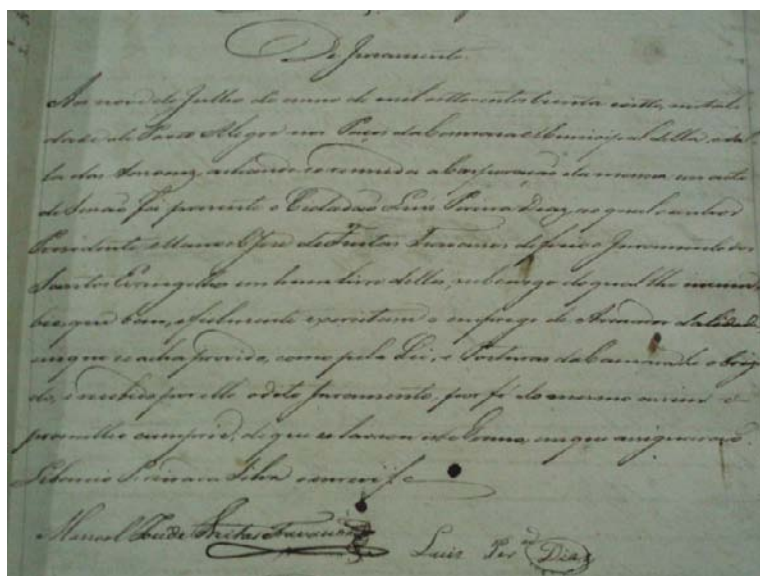 De Juramento.
Aos nove de Julho do anno de mil oito centos trinta e oitto, nesta Ci
dade de Porto Alegre nos Paços da Camara Municipal della, e sal
la das achando-se reunida a Corporação da mesma em acto
de Sessão foi presente o Cidadão Luis Pereira Dias, ao qual o senhor
Presidente Manoel José de Freitas Travassos diferio o Juramento dos
Santos Evangelhos em hum livro delles, sub cargo do qual lhe
que bem, e fielmente o emprego de Arruador da Cidade
em que se acha provido, como pela Lei, e Posturas da Camara he obriga
do, e recebido por elle o dito Juramento, por fé do mesmo assim o
prometteo cumprir, de que se lavrou este Termo, em que assignarão.
Silva escrevi
Manoel José de Freitas Travassos
Luis Per.ª Dias